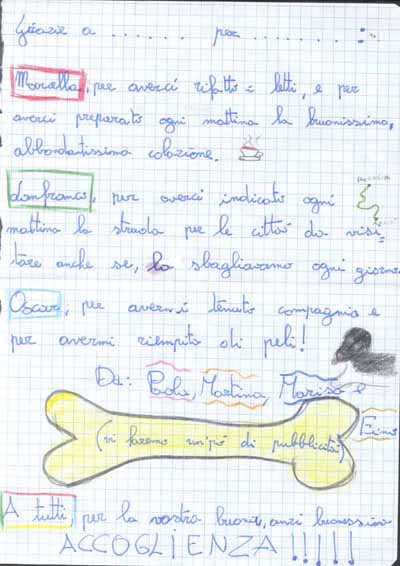 Grazie a . . . . . . per . . . . . . . :
Marcella, per averci rifatto i letti, e per
averci preparato ogni mattina la buonissima,
abbondatissima colazione.
Lanfranco, per averci indicato ogni
mattina la strada per le città da visi=
tare anche se, la sbagliavamo ogni giorno.
Oscar, per avermi tenuto compagnia e
per avermi riempito di peli!
Da: Paola, Martina, Marisa e
Eino
(vi faremo un'pò di pubblicità)
A tutti, per la vostra buona, anzi buonissima
ACCOGLIENZA!!!!!